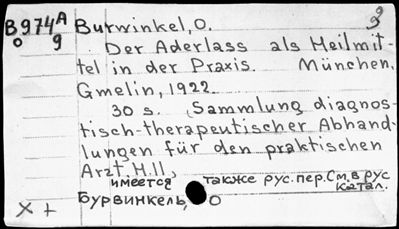 B974A Burwinkel, O. 9
o 9 Der Aderlass als Heilmit- 9
tel in der Praxis. München,
Gmelin, 1922.
30 s. (Sammlung diagnos-
tisch-therapeutischer Abhand-
lungen für den praktischen
Arzt. H.11,
имеется также рус. пер. См. в рус
катал.
Бурвинкель, О
X +